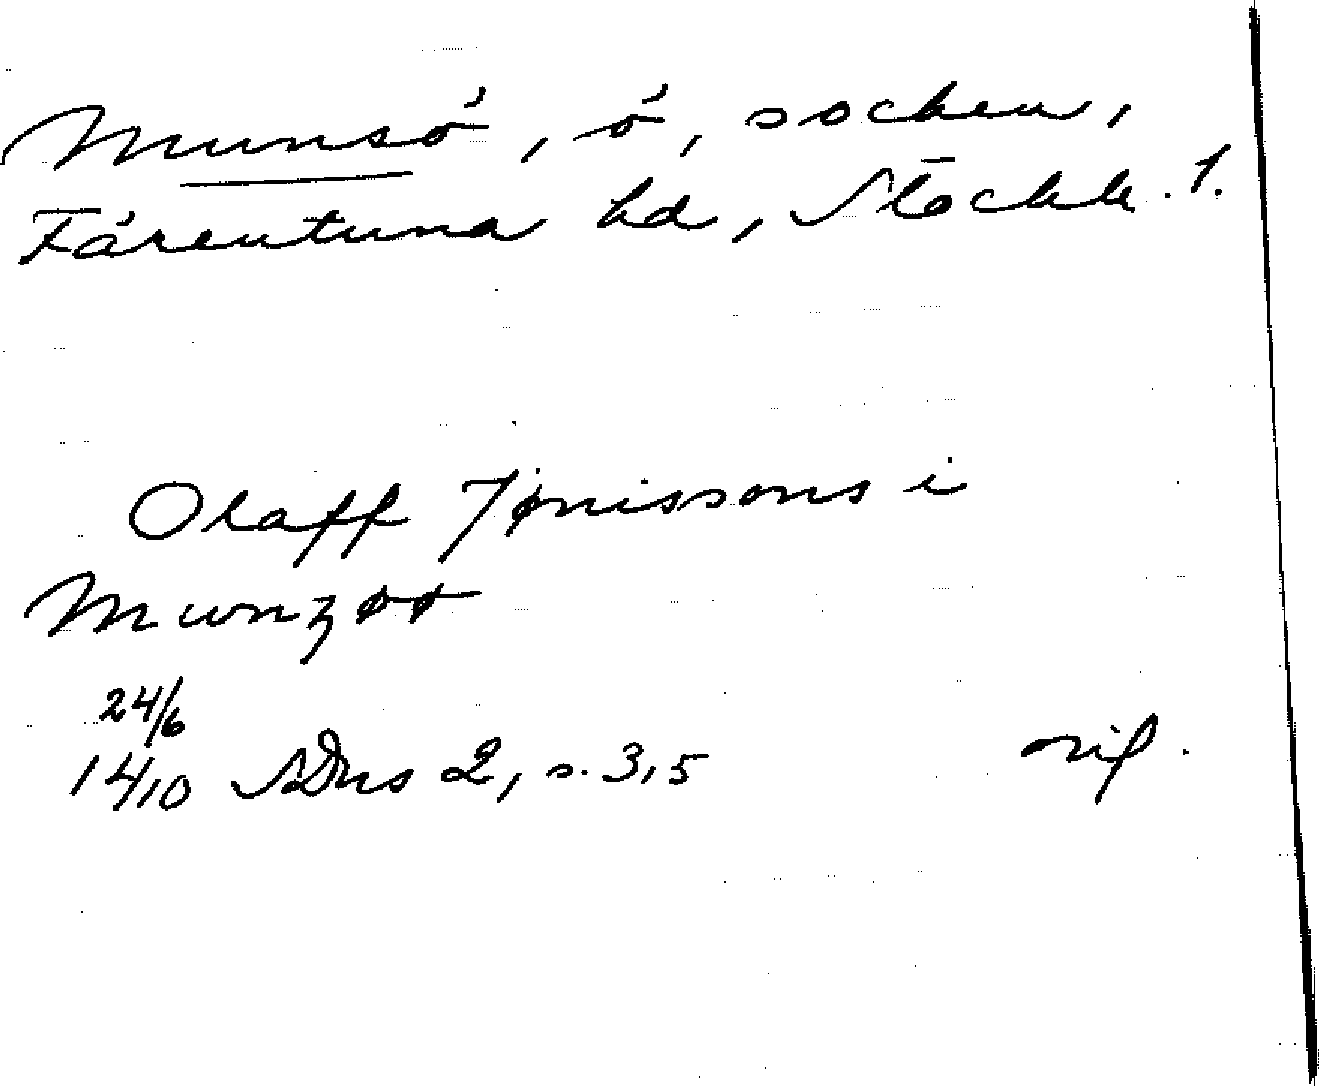 Munsö, ö, socken,
Färentuna hd, Stockh. l.
Olaff Jønissons i
Munzøø
24/6
14/10 SDns 2, s. 3,5